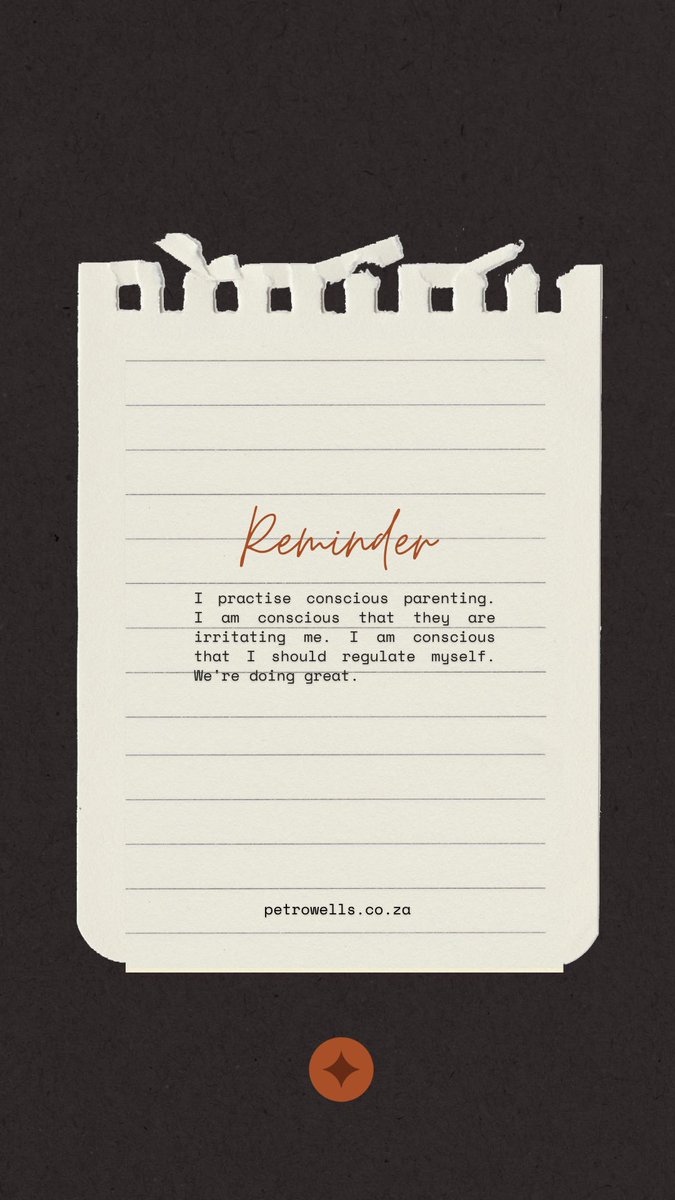 Reminder
I practise conscious parenting.
I am conscious that they are
irritating me. I am conscious
that I should regulate myself.
We're doing great.
petrowells.co.za